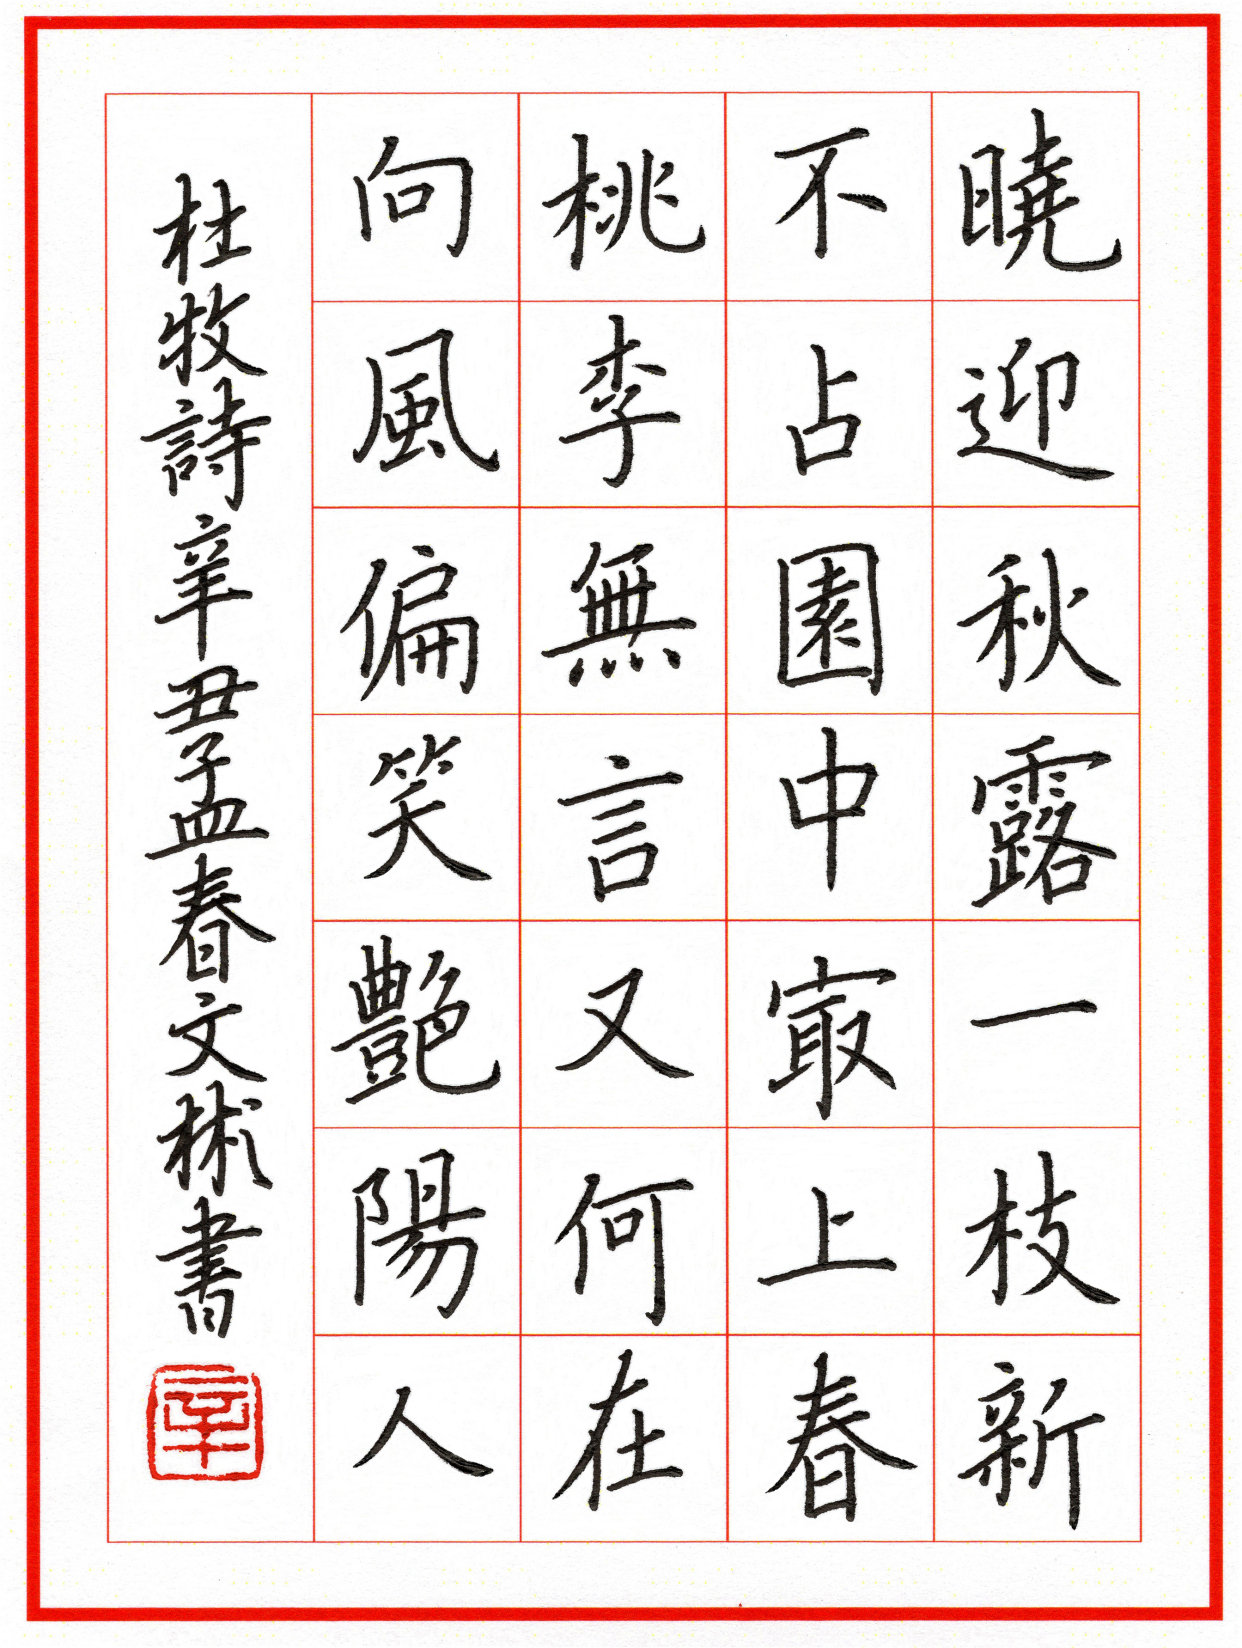 曉迎秋露一枝新
不占園中冣上春
桃李無言又何在
向風偏笑艷陽人
杜牧詩辛丑孟春文彬書